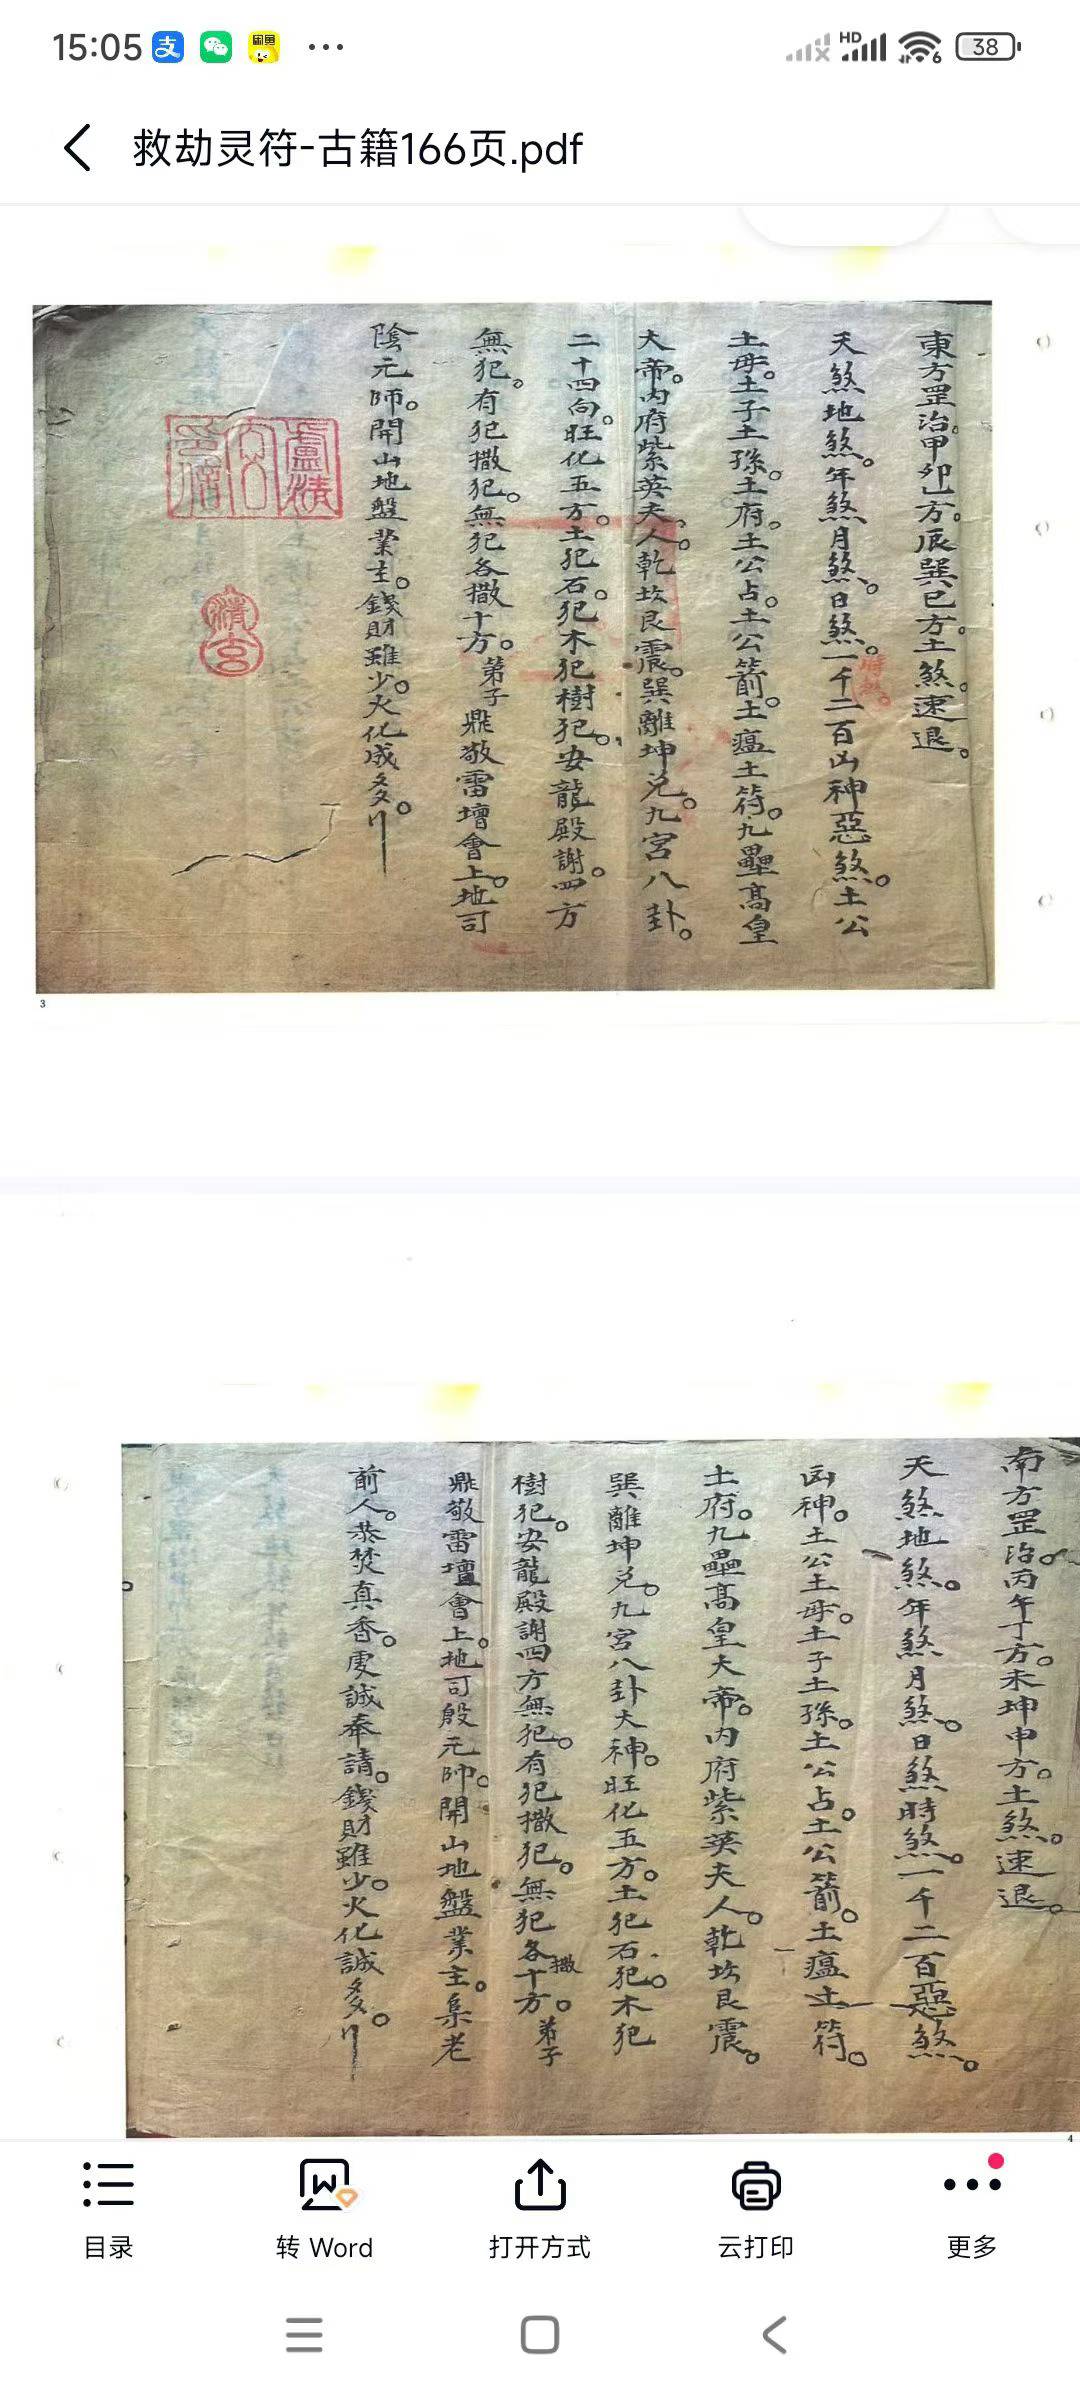 15:05
HD
6
38
救劫灵符-古籍166页.pdf
東方罡治。甲卯乙方。辰巽巳方。土煞速退。
天煞地煞。年煞月煞。日煞。一千二百凶神惡煞。土公
時煞。
土母。土子土孫。土府。土公占。土公箭。土瘟土符。九壘高皇
大帝。內府紫英夫人。乾坎艮震。巽離坤兑。九宮八卦。
二十四向。旺化五方。土犯石。犯木犯樹犯。安龍殿謝。四方
無犯。有犯撒犯。無犯各撒十方。弟子鼎敬雷壇會上。地司
陰元帅。開山地盤業主。錢財雖少。火化成多。
3
南方罡治。丙午丁方。未坤申方。土煞。速退。
天煞地煞。年煞月煞。日煞時煞。一千二百惡煞。
凶神。土公土母。土子土孫。土公占。土公箭。土瘟土符。
土府。九壘高皇大帝。內府紫英夫人。乾坎艮震。
巽離坤兑。九宮八卦大神。旺化五方。土犯石犯。木犯
樹犯。安龍殿謝四方無犯。有犯撒犯。無犯各撒十方。弟子
鼎敬雷壇會上。地司殷元帅。開山地盤業主。集老
前人。恭焚真香。虔誠奉請。錢財雖少。火化誠多。
4
目录
转 Word
打开方式
云打印
更多